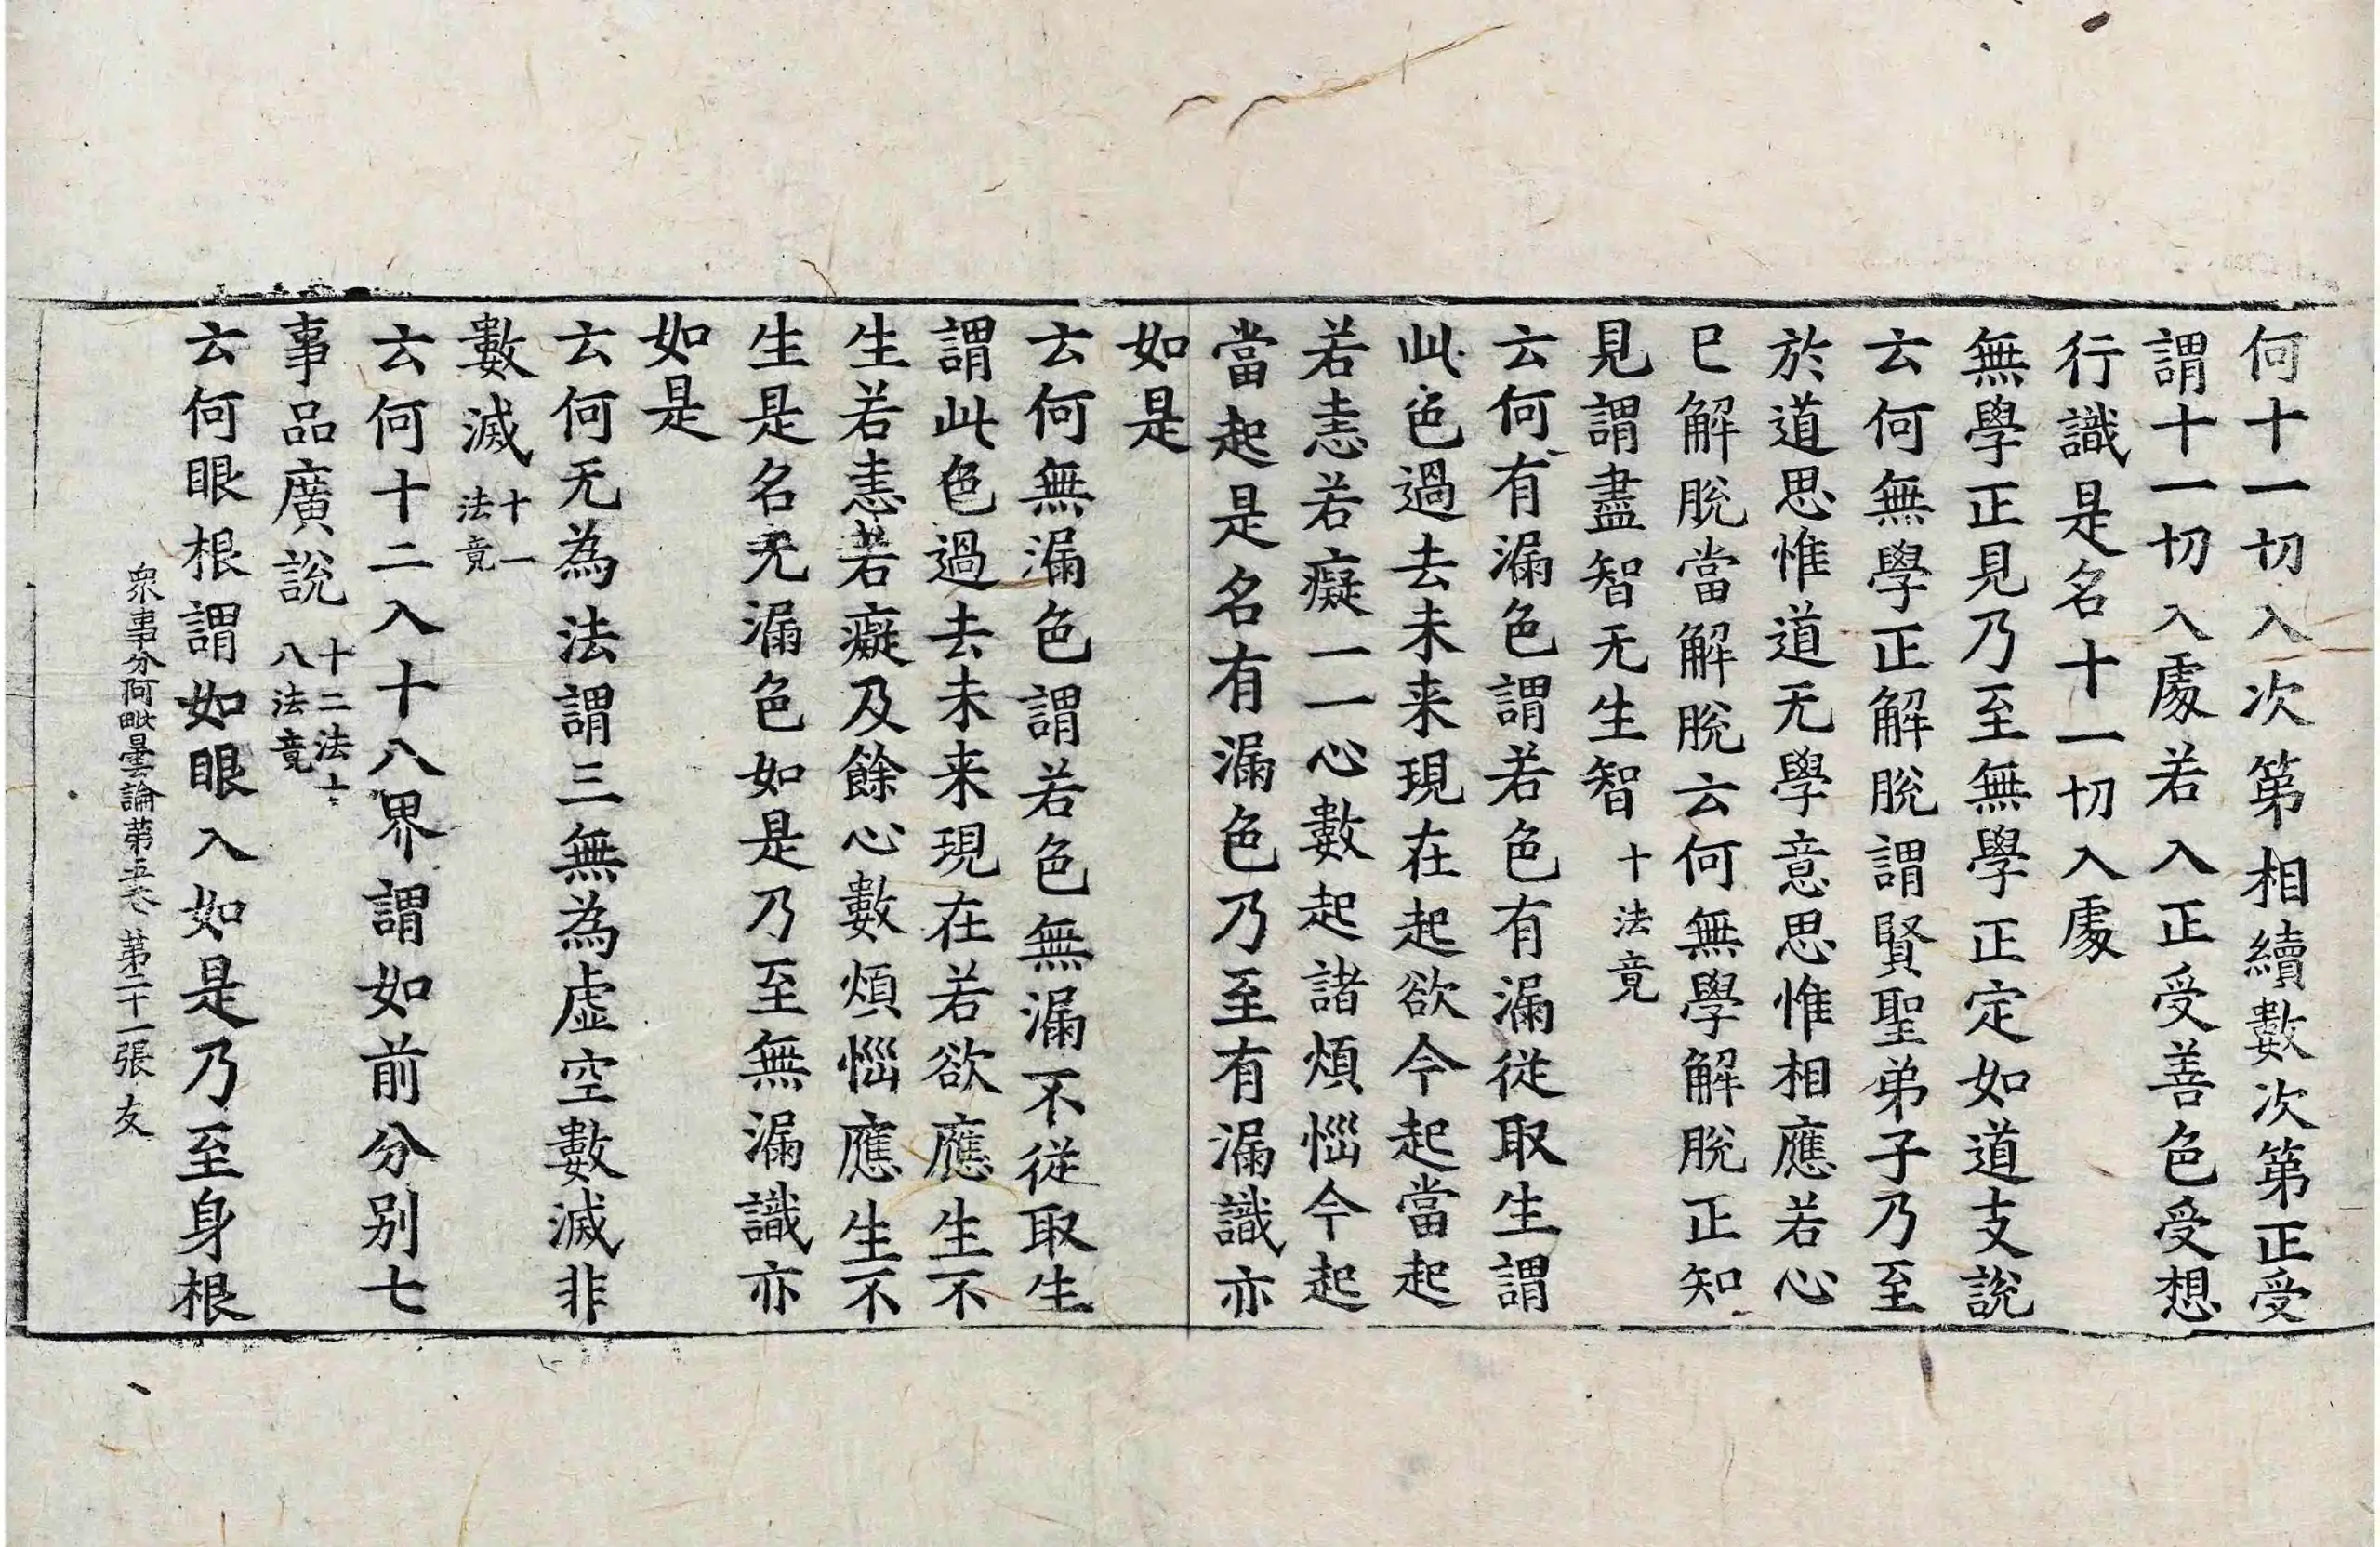 何十一切入次第相續數次第正受
謂十一切入處若入正受善色受想
行識是名十一切入處
無學正見乃至無學正定如道支說
云何無學正解脫謂賢聖弟子乃至
於道思惟道无學意思惟相應若心
已解脫當解脫云何無學解脫正知
見謂盡智无生智十法竟
云何有漏色謂若色有漏從取生謂
此色過去未来現在起欲今起當起
若恚若癡一一心數起諸煩惱今起
當起是名有漏色乃至有漏識亦
如是
云何無漏色謂若色無漏不從取生
謂此色過去未来現在若欲應生不
生若恚若癡及餘心數煩惱應生不
生是名无漏色如是乃至無漏識亦
如是
云何无為法謂三無為虛空數滅非
數滅十一法竟
云何十二入十八界謂如前分別七
事品廣說十二法十八法竟
云何眼根謂如眼入如是乃至身根
衆事分阿毗曇論第五卷 第二十一張 友